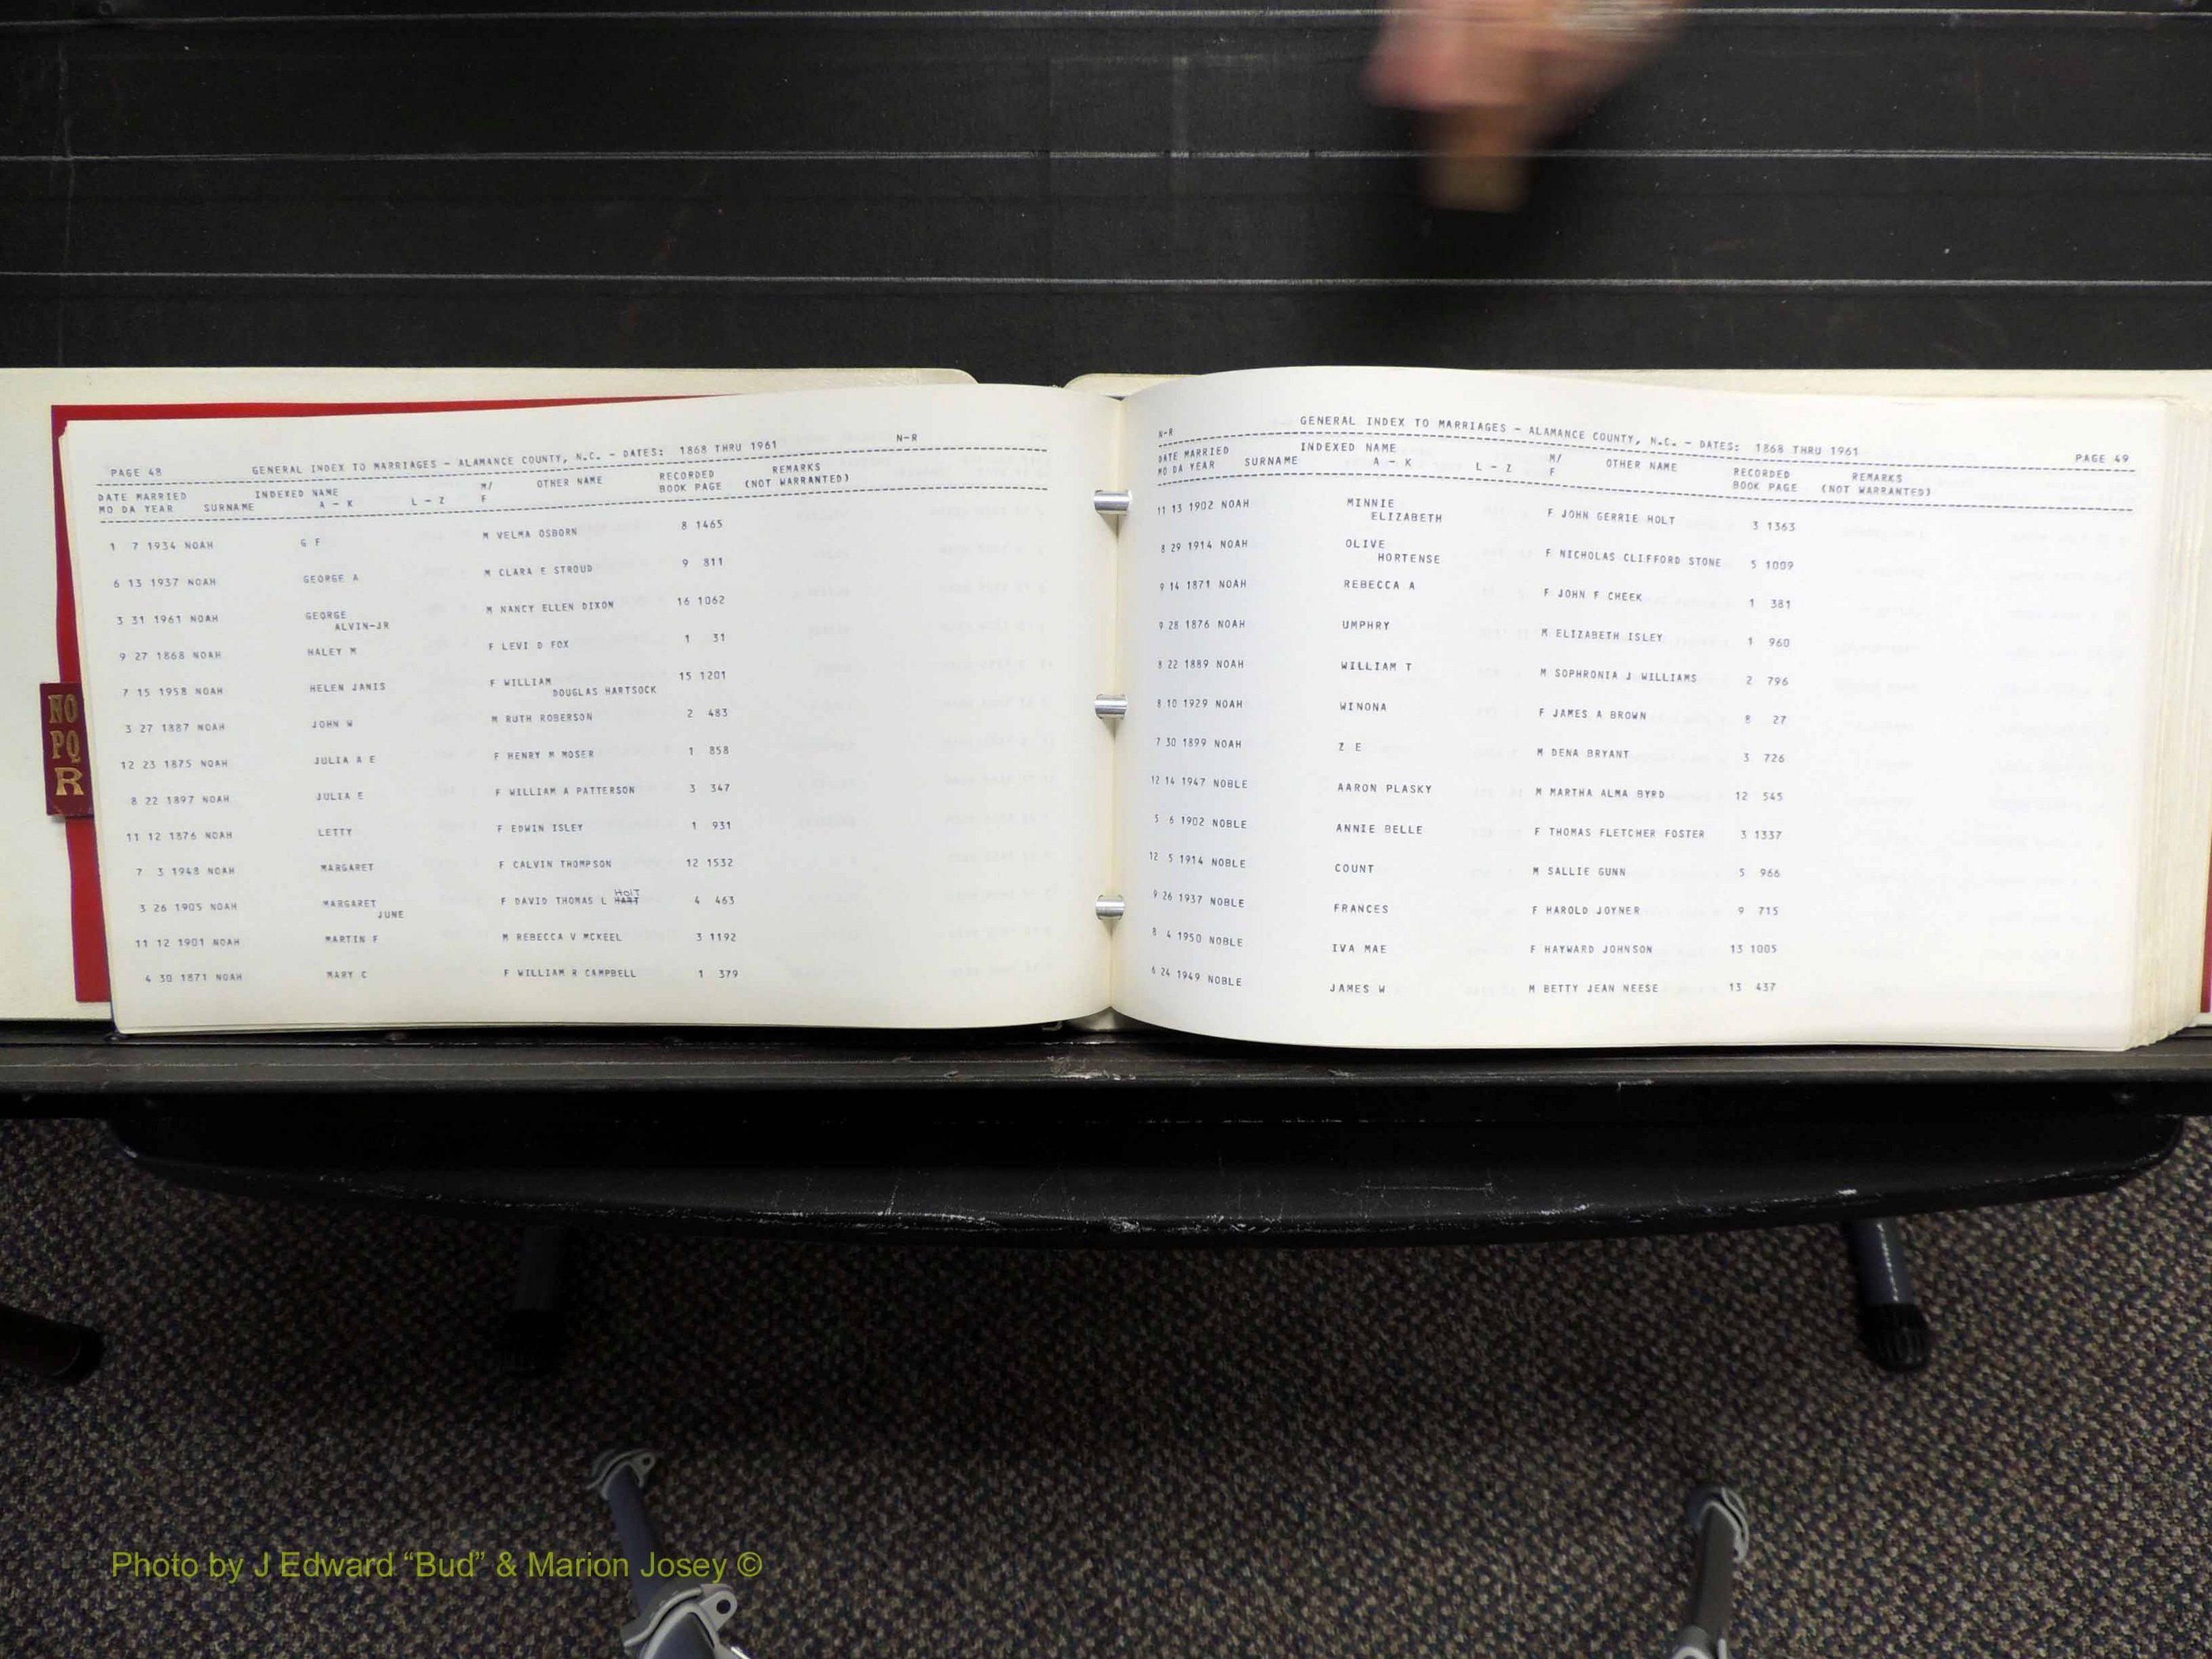 NO
PQ
R
PAGE 48 GENERAL INDEX TO MARRIAGES - ALAMANCE COUNTY, N.C. - DATES: 1868 THRU 1961 N-R
DATE MARRIED INDEXED NAME M/ OTHER NAME RECORDED REMARKS
MO DA YEAR SURNAME A - K L - Z F BOOK PAGE (NOT WARRANTED)
1 7 1934 NOAH G F M VELMA OSBORN 8 1465
6 13 1937 NOAH GEORGE A M CLARA E STROUD 9 811
3 31 1961 NOAH GEORGE M NANCY ELLEN DIXON 16 1062
ALVIN-JR
9 27 1868 NOAH HALEY M F LEVI D FOX 1 31
7 15 1958 NOAH HELEN JANIS F WILLIAM 15 1201
DOUGLAS HARTSOCK
3 27 1887 NOAH JOHN W M RUTH ROBERSON 2 483
12 23 1875 NOAH JULIA A E F HENRY M MOSER 1 858
8 22 1897 NOAH JULIA E F WILLIAM A PATTERSON 3 347
11 12 1876 NOAH LETTY F EDWIN ISLEY 1 931
7 3 1948 NOAH MARGARET F CALVIN THOMPSON 12 1532
HOLT
3 26 1905 NOAH MARGARET F DAVID THOMAS L HART 4 463
JUNE
11 12 1901 NOAH MARTIN F M REBECCA V MCKEEL 3 1192
4 30 1871 NOAH MARY C F WILLIAM R CAMPBELL 1 379
N-R GENERAL INDEX TO MARRIAGES - ALAMANCE COUNTY, N.C. - DATES: 1868 THRU 1961 PAGE 49
DATE MARRIED INDEXED NAME M/ OTHER NAME RECORDED REMARKS
MO DA YEAR SURNAME A - K L - Z F BOOK PAGE (NOT WARRANTED)
11 13 1902 NOAH MINNIE F JOHN GERRIE HOLT 3 1363
ELIZABETH
8 29 1914 NOAH OLIVE F NICHOLAS CLIFFORD STONE 5 1009
HORTENSE
9 14 1871 NOAH REBECCA A F JOHN F CHEEK 1 381
9 28 1876 NOAH UMPHRY M ELIZABETH ISLEY 1 960
8 22 1889 NOAH WILLIAM T M SOPHRONIA J WILLIAMS 2 796
8 10 1929 NOAH WINONA F JAMES A BROWN 8 27
7 30 1899 NOAH Z E M DENA BRYANT 3 726
12 14 1947 NOBLE AARON PLASKY M MARTHA ALMA BYRD 12 545
5 6 1902 NOBLE ANNIE BELLE F THOMAS FLETCHER FOSTER 3 1337
12 5 1914 NOBLE COUNT M SALLIE GUNN 5 966
9 26 1937 NOBLE FRANCES F HAROLD JOYNER 9 715
8 4 1950 NOBLE IVA MAE F HAYWARD JOHNSON 13 1005
6 24 1949 NOBLE JAMES W M BETTY JEAN NEESE 13 437
Photo by J Edward “Bud” & Marion Josey ©